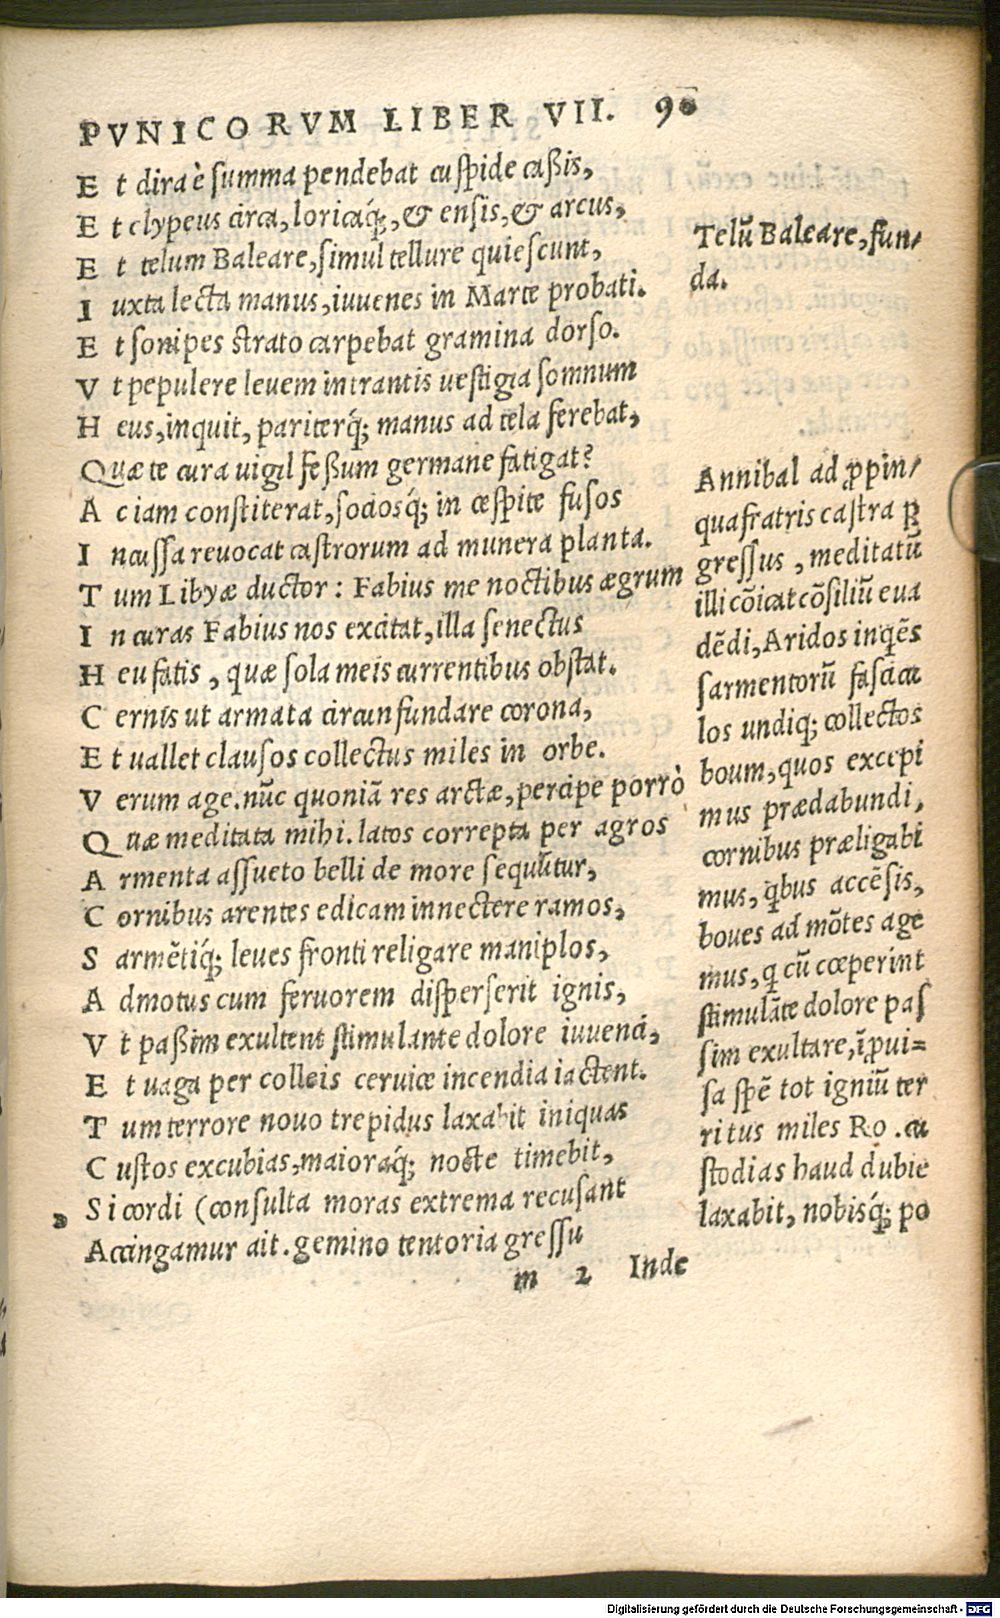 PVNICORVM LIBER VII. 90
E t dira è summa pendebat cuspide caßis,
E t clypeus circa, loricaq́;, & ensis, & arcus,
E t telum Baleare, simul tellure quiescunt,
I uxta lecta manus, iuuenes in Marte probati.
E t sonipes strato carpebat gramina dorso.
V t pepulere leuem intrantis uestigia somnum
H eus, inquit, pariterq́; manus ad tela ferebat,
Quæ te cura uigil feßum germane fatigat?
A c iam constiterat, sociosq́; in cespite fusos
I ncussa reuocat castrorum ad munera planta.
T um Libyæ ductor: Fabius me noctibus ægrum
I n curas Fabius nos excitat, illa senectus
H eu fatis, quæ sola meis currentibus obstat.
C ernis ut armata circunfundare corona,
E t uallet clausos collectus miles in orbe.
V erum age. nūc quoniā res arctæ, percipe porrò
Q uæ meditata mihi. latos correpta per agros
A rmenta assueto belli de more sequūtur,
C ornibus arentes edicam innectere ramos,
S armētiq́; leues fronti religare maniplos,
A dmotus cum feruorem disperserit ignis,
V t paßim exultent stimulante dolore iuuenci,
E t uaga per colleis ceruice incendia iactent.
T um terrore nouo trepidus laxabit iniquas
C ustos excubias, maioraq́; nocte timebit,
S i cordi (consulta moras extrema recusant
Accingamur ait. gemino tentoria gressu
m 2 Inde
Telū Baleare, fun/
da.
Annibal ad ꝓpin/
qua fratris castra ꝓ
gressus, meditatū
illi cōicat cōsiliū eua
dēdi, Aridos inq̄ēs
sarmentorū fascicu
los undiq; collectos
boum, quos excepi
mus prædabundi,
cornibus præligabi
mus, q̇bus accēsis,
boues ad mōtes age
mus, q cū cœperint
stimulāte dolore pas
sim exultare, īꝓui=
sa spē tot igniū ter
ritus miles Ro. cu
stodias haud dubie
laxabit, nobisq́; po
Digitalisierung gefördert durch die Deutsche Forschungsgemeinschaft - DFG